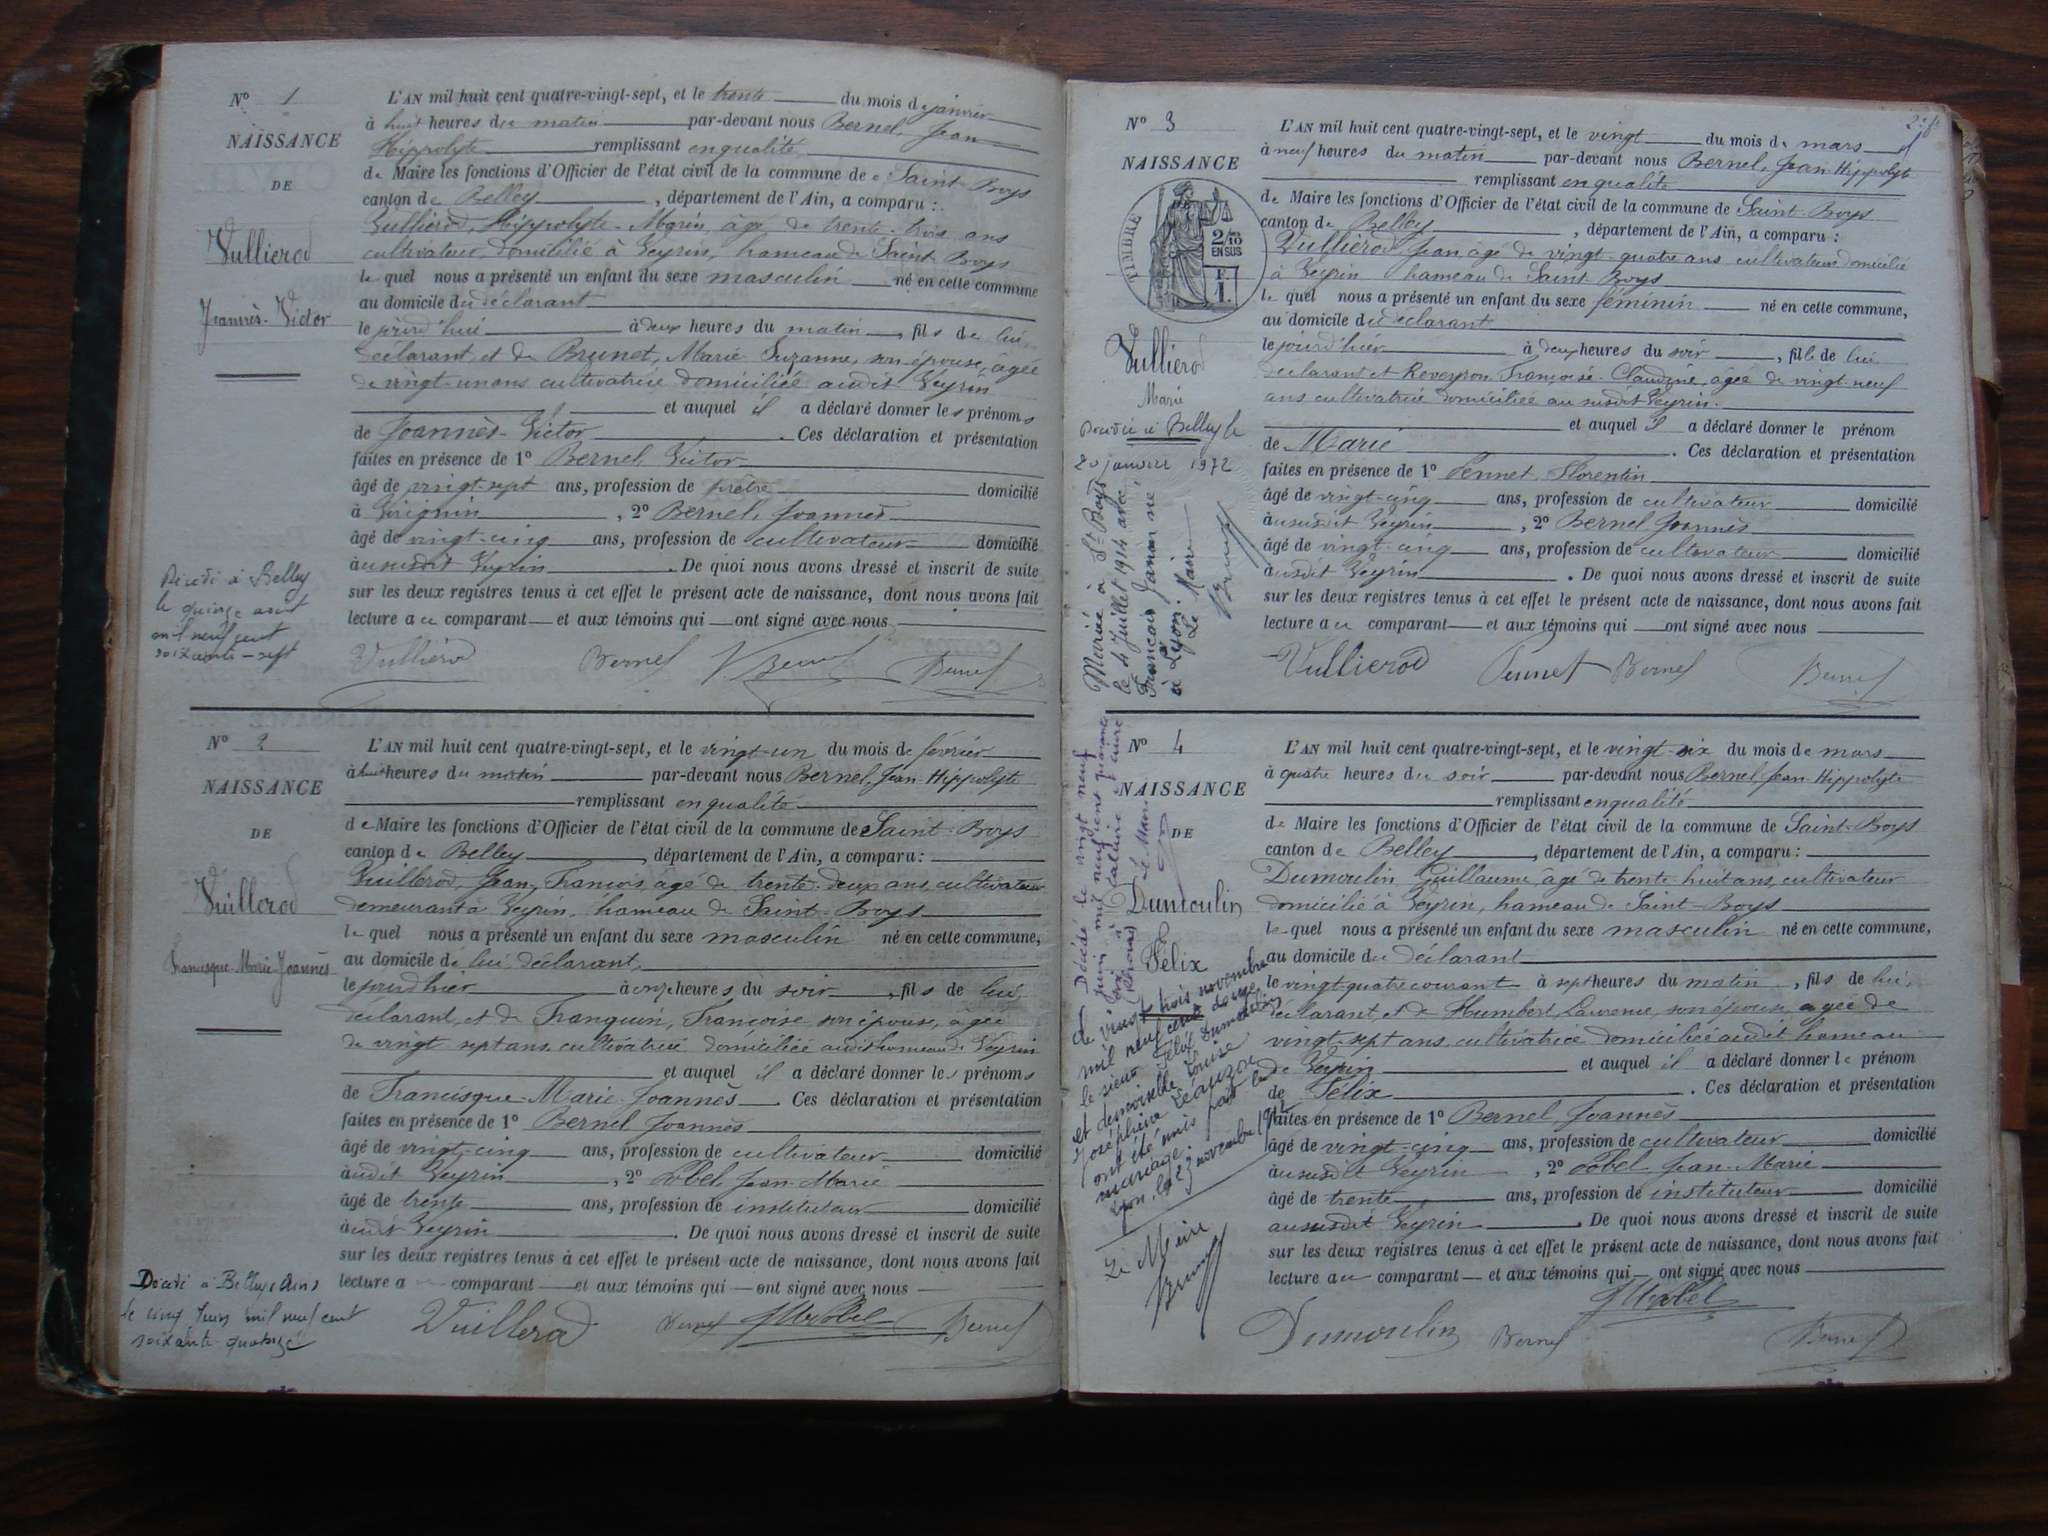 N° 1
NAISSANCE
DE
Vullierod
Joannès-Victor
L'AN mil huit cent quatre-vingt-sept, et le trente du mois de janvier
à huit heures du matin par-devant nous Bernel, Jean
Hippolyte remplissant en qualité
de Maire les fonctions d'Officier de l'état civil de la commune de Saint-Boys
canton de Belley, département de l'Ain, a comparu :
Vullierod, Hippolyte-Marin, âgé de trente-trois ans
cultivateur, domicilié à Veyrin, hameau de Saint-Boys
le quel nous a présenté un enfant du sexe masculin né en cette commune
au domicile du déclarant
le jourd'hui à deux heures du matin, fils de lui
déclarant et de Brunet, Marie Suzanne, son épouse, âgée
de vingt-un ans cultivatrice domiciliée audit Veyrin
et auquel il a déclaré donner les prénoms
de Joannès-Victor. Ces déclaration et présentation
faites en présence de 1° Bernel, Victor
âgé de vingt-sept ans, profession de prêtre domicilié
à Virignin, 2° Bernel, Joannès
âgé de vingt-cinq ans, profession de cultivateur domicilié
au susdit Veyrin. De quoi nous avons dressé et inscrit de suite
sur les deux registres tenus à cet effet le présent acte de naissance, dont nous avons fait
lecture au comparant et aux témoins qui ont signé avec nous
Vullierod Bernel V. Bernel Bernel
Décédé à Belley
le quinze août
mil neuf cent
soixante-sept
N° 2
NAISSANCE
DE
Vuillerod
Francisque-Marie-Joannès
L'AN mil huit cent quatre-vingt-sept, et le vingt-un du mois de février
à huit heures du matin par-devant nous Bernel, Jean-Hippolyte
remplissant en qualité
de Maire les fonctions d'Officier de l'état civil de la commune de Saint-Boys
canton de Belley, département de l'Ain, a comparu :
Vuillerod, Jean, François, âgé de trente-deux ans, cultivateur
demeurant à Veyrin, hameau de Saint-Boys
le quel nous a présenté un enfant du sexe masculin né en cette commune,
au domicile de lui, déclarant,
le jourd'hier à onze heures du soir, fils de lui,
déclarant, et de Franquin, Françoise son épouse, âgée
de vingt sept ans, cultivatrice domiciliée audit hameau de Veyrin
et auquel il a déclaré donner les prénoms
de Francisque-Marie-Joannès. Ces déclaration et présentation
faites en présence de 1° Bernel Joannès
âgé de vingt-cinq ans, profession de cultivateur domicilié
audit Veyrin, 2° Jean-Marie
âgé de trente ans, profession de instituteur domicilié
audit Veyrin. De quoi nous avons dressé et inscrit de suite
sur les deux registres tenus à cet effet le présent acte de naissance, dont nous avons fait
lecture a comparant et aux témoins qui ont signé avec nous
Vuillerod Bernel Bernel
Décédé à Belley Ain
le cinq mil neuf cent
soixante-quatorze
N° 3
NAISSANCE
TIMBRE
2/10
EN SUS
F.
1.
Vullierod
Marie
Décédée à Belley le
20 janvier 1972
Mariée à St Boys
le 4 Juillet 1914 avec
François Janin né
à Lyon.
Le Maire
L'AN mil huit cent quatre-vingt-sept, et le vingt du mois de mars
à neuf heures du matin par-devant nous Bernel, Jean-Hippolyte
remplissant en qualité
de Maire les fonctions d'Officier de l'état civil de la commune de Saint-Boys
canton de Belley, département de l'Ain, a comparu :
Vullierod Jean âgé de vingt-quatre ans cultivateur domicilié
à Veyrin hameau de Saint Boys
le quel nous a présenté un enfant du sexe féminin né en cette commune,
au domicile du déclarant
le jourd'hier à deux heures du soir, fille de lui
déclarant et Reveyron, Françoise-Claudine, âgée de vingt-neuf
ans cultivatrice domiciliée au susdit Veyrin.
et auquel il a déclaré donner le prénom
de Marie. Ces déclaration et présentation
faites en présence de 1° Pennet, Florentin
âgé de vingt-cinq ans, profession de cultivateur domicilié
au susdit Veyrin, 2° Bernel Joannès
âgé de vingt-cinq ans, profession de cultivateur domicilié
audit Veyrin. De quoi nous avons dressé et inscrit de suite
sur les deux registres tenus à cet effet le présent acte de naissance, dont nous avons fait
lecture au comparant et aux témoins qui ont signé avec nous
Vullierod Pennet Bernel Bernel
N° 4
NAISSANCE
DE
Dumoulin
Félix
Décédé le vingt neuf
juin mil neuf cent quarante
à Caluire et Cuire
(Rhône) Le Maire
L'AN mil huit cent quatre-vingt-sept, et le vingt-six du mois de mars
à quatre heures du soir par-devant nous Bernel Jean-Hippolyte
remplissant en qualité
de Maire les fonctions d'Officier de l'état civil de la commune de Saint-Boys
canton de Belley, département de l'Ain, a comparu :
Dumoulin Guillaume, âgé de trente-huit ans, cultivateur
domicilié à Veyrin, hameau de Saint-Boys
le quel nous a présenté un enfant du sexe masculin né en cette commune,
au domicile du déclarant
le vingt quatre courant à sept heures du matin, fils de lui,
déclarant et de Humbert, Laurence, son épouse, agée de
vingt-sept ans, cultivatrice domiciliée audit hameau
de Veyrin et auquel il a déclaré donner le prénom
de Félix. Ces déclaration et présentation
faites en présence de 1° Bernel Joannès
âgé de vingt-cinq ans, profession de cultivateur domicilié
au susdit Veyrin, 2° Jean-Marie
âgé de trente ans, profession de instituteur domicilié
au susdit Veyrin. De quoi nous avons dressé et inscrit de suite
sur les deux registres tenus à cet effet le présent acte de naissance, dont nous avons fait
lecture au comparant et aux témoins qui ont signé avec nous
Dumoulin Bernel Bernel
Le vingt trois novembre
mil neuf cent douze
le sieur Félix Dumoulin
et demoiselle Louise
Joséphine
ont été unis par le
mariage.
Lyon, le 23 novembre 1912
Le Maire